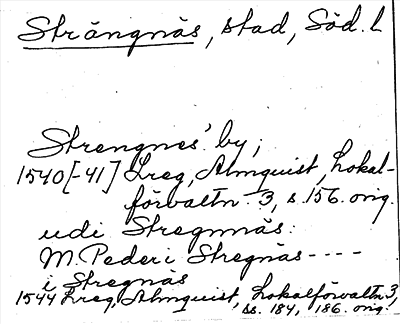 Strängnäs, stad, Söd. L
Strengnes' by;
1540[-41] Lreg, Almquist, Lokal-
förvaltn. 3, s. 156. orig.
udi Stregnnäs.
M. Peder i Stregnäs----
i Stregnäs
1544 Lreg, Almquist, Lokalförvaltn 3,
ss. 184, 186. orig.